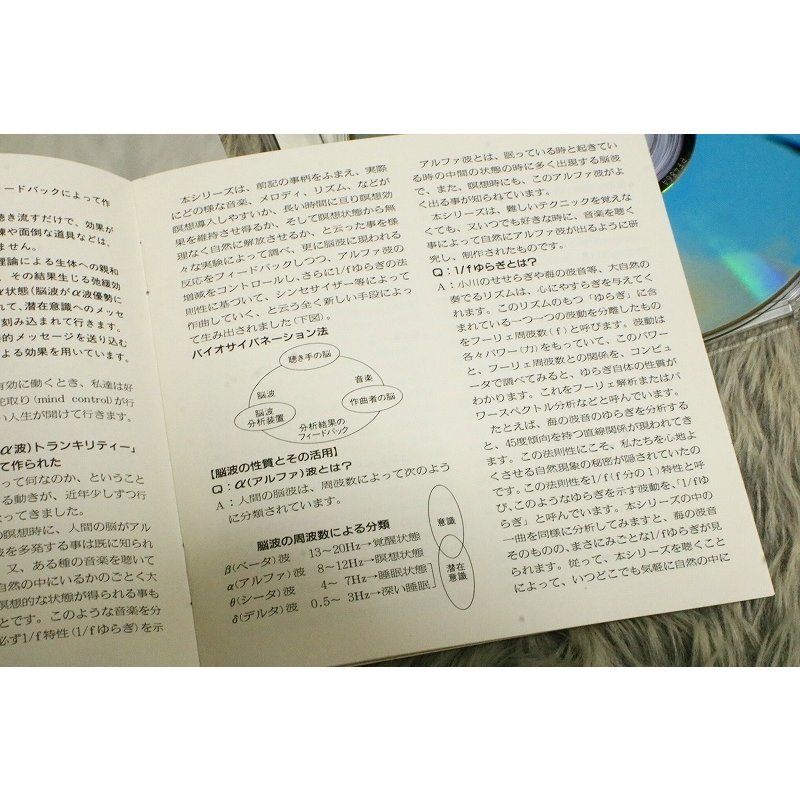 ィードバックによって作
聴き流すだけで、効果が
練や面倒な道具などは、
ません。
理論による生体への親和
、その結果生じる弛緩効
α状態(脳波がα波優勢に
れて、潜在意識へのメッセ
刻み込まれて行きます。
的メッセージを送り込む
よる効果を用いています。
有効に働くとき、私達は好
宅取り(mind control)が行
い人生が開けて行きます。
α波)トランキリティー」
て作られた
って何なのか、ということ
る動きが、近年少しずつ行
ってきました。
の瞑想時に、人間の脳がアル
波を多発する事は既に知られ
、又、ある種の音楽を聴いて
自然の中にいるかのごとく大
瞑想的な状態が得られる事も
とです。このような音楽を分
必ず1/f特性(1/fゆらぎ)を示
本シリーズは、前記の事柄をふまえ、実際
にどの様な音楽、メロディ、リズム、などが
瞑想導入しやすいか、長い時間に亘り瞑想効
果を維持させ得るか、そして瞑想状態から無
理なく自然に解放させるか、と云った事を様
々な実験によって調べ、更に脳波に現われる
反応をフィードバックしつつ、アルファ波の
増減をコントロールし、さらに1/fゆらぎの法
則性に基づいて、シンセサイザー等によって
作曲していく、と云う全く新しい手段によっ
て生み出されました(下図)。
バイオサイバネーション法
聴き手の脳
脳波
音楽
脳波
分析装置
作曲者の脳
分析結果の
フィードバック
【脳波の性質とその活用】
Q:α(アルファ)波とは?
A:人間の脳波は、周波数によって次のよう
に分類されています。
脳波の周波数による分類
β(ベータ)波 13〜20Hz→覚醒状態
α(アルファ)波 8〜12Hz→瞑想状態
θ(シータ)波 4〜 7Hz→睡眠状態
δ(デルタ)波 0.5〜 3Hz→深い睡眠
意識
潜在
意識
アルファ波とは、眠っている時と起きてい
る時の中間の状態の時に多く出現する脳波
で、また、瞑想時にも、このアルファ波がよ
く出る事が知られています。
本シリーズは、難しいテクニックを覚えな
くても、又いつでも好きな時に、音楽を聴く
事によって自然にアルファ波が出るように研
究し、制作されたものです。
Q:1/fゆらぎとは?
A:小川のせせらぎや海の波音等、大自然の
奏でるリズムは、心にやすらぎを与えてく
れます。このリズムのもつ「ゆらぎ」に含
まれている一つ一つの波動を分離したもの
をフーリェ周波数(f)と呼びます。波動は
各々パワー(力)をもっていて、このパワー
と、フーリェ周波数との関係を、コンピュ
ータで調べてみると、ゆらぎ自体の性質が
わかります。これをフーリェ解析またはパ
ワースペクトル分析などと呼んでいます。
たとえば、海の波音のゆらぎを分析する
と、45度傾向を持つ直線関係が現われてき
ます。この法則性にこそ、私たちを心地よ
くさせる自然現象の秘密が隠されていたの
です。この法則性を1/f(f分の1)特性と呼
び、このようなゆらぎを示す波動を、「1/fゆ
らぎ」と呼んでいます。本シリーズの中の
一曲を同様に分析してみますと、海の波音
そのもの、まさにみごとな1/fゆらぎが見
られます。従って、本シリーズを聴くこと
によって、いつどこでも気軽に自然の中に